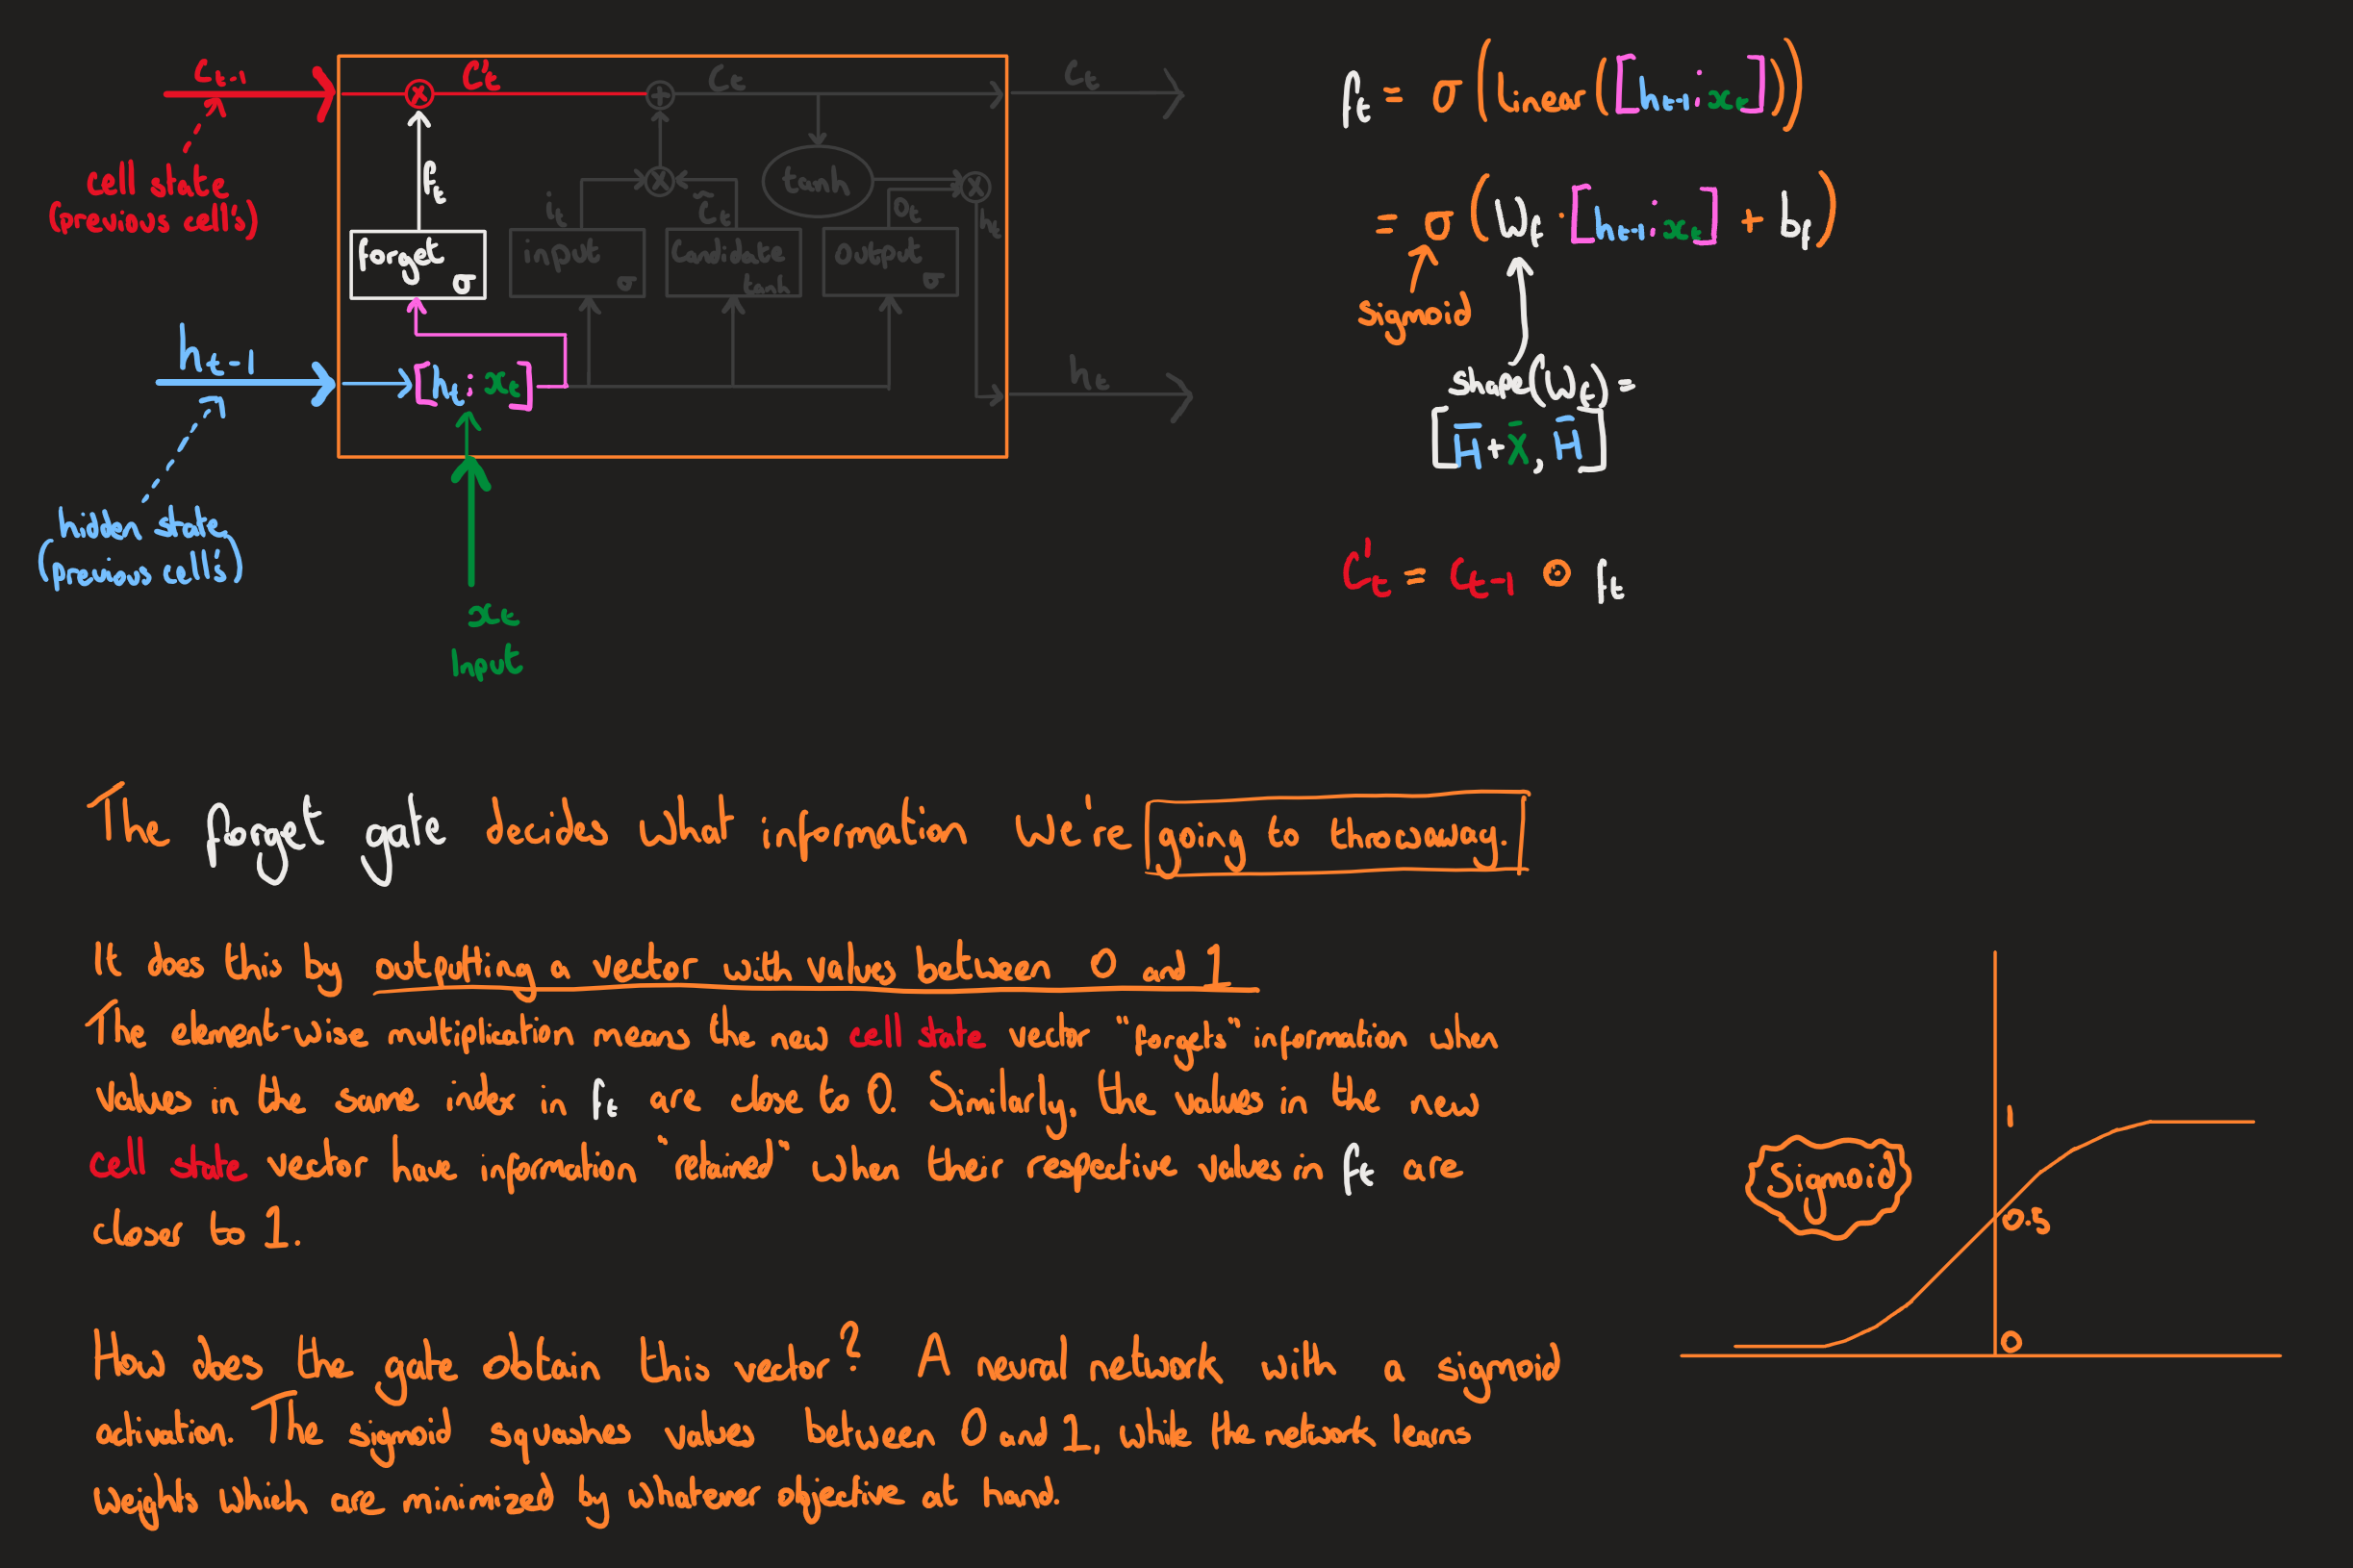 C_{t-1}
cell state
(previous cell's)
C'_t
C_t
C_t
f_t
i_t
C̃_t
tanh
o_t
h_t
forget σ
input σ
Candidate tanh
Output σ
h_{t-1}
[h_t ; x_t]
h_t
hidden state
(previous cell's)
x_t
Input
f_t = σ(Linear([h_{t-1} ; x_t]))
= σ(W_f · [h_{t-1} ; x_t] + b_f)
sigmoid
shape(W_f) =
[H̄ + X̄, H̄]
C'_t = C_{t-1} ⊙ f_t
The forget gate decides what information we're going to throwaway.
It does this by outputting a vector with values between 0 and 1
The element-wise multiplication means the new cell state vector "forgets" information when
values in the same index in f_t are close to 0. Similarly, the values in the new
cell state vector have information "retained" when their respective values in f_t are
closer to 1.
How does the gate obtain this vector? A neural network with a sigmoid
activation. The sigmoid squashes values between 0 and 1, while the network learns
weights which are minimized by whatever objective at hand.
Sigmoid
1
0.5
0